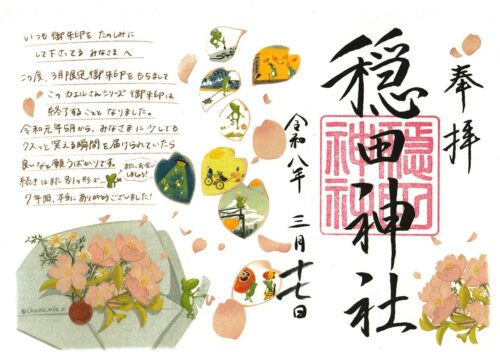 奉拝
穏田神社
穏田神社
令和八年 三月十七日
いつも御朱印をたのしみに
して下さってる みなさまへ
この度、3月限定御朱印をもちまして
このカエルさんシリーズ御朱印は
終了することとなりました。
令和元年5月から、みなさまに少しでも
クスッと笑える瞬間を届けられていたら
良いなと願うばかりです。
続きはまた別の形で
また、お会い
しましょう!
7年間、本当にありがとうございました!
©chamo_mile_n